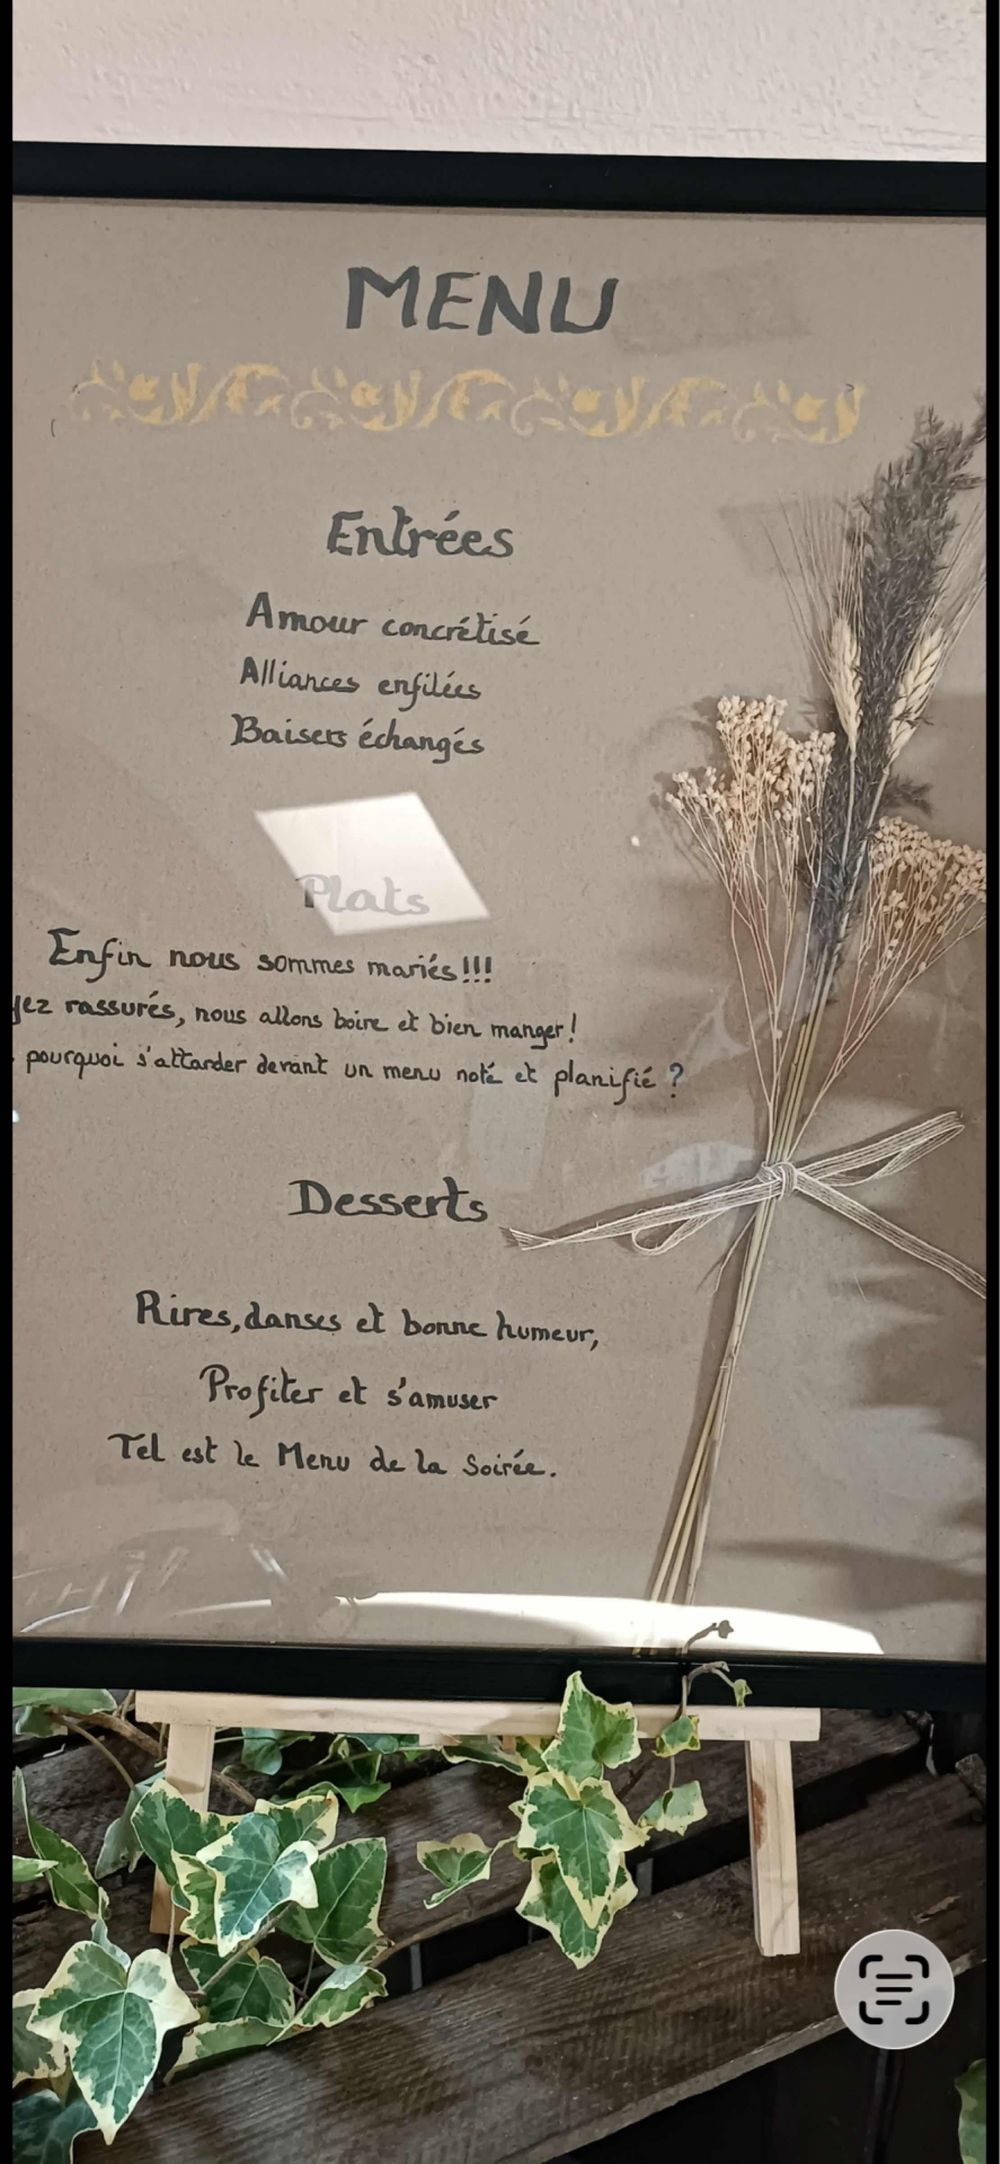 MENU
Entrées
Amour concrétisé
Alliances enfilées
Baisers échangés
Plats
Enfin nous sommes mariés!!!
yez rassurés, nous allons boire et bien manger!
pourquoi s'attarder devant un menu noté et planifié ?
Desserts
Rires, danses et bonne humeur,
Profiter et s'amuser
Tel est le Menu de la Soirée.